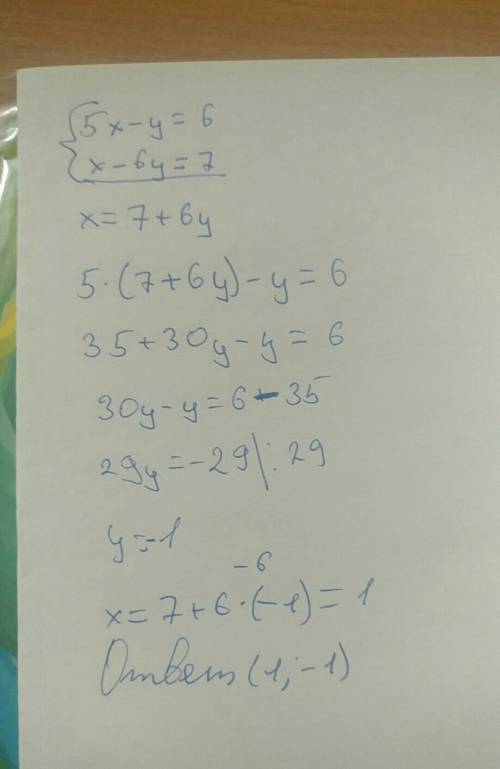 5x-y=6
x-6y=7
x=7+6y
5·(7+6y)-y=6
35+30y-y=6
30y-y=6-35
29y=-29|:29
y=-1
-6
x=7+6·(-1)=1
Ответ (1;-1)